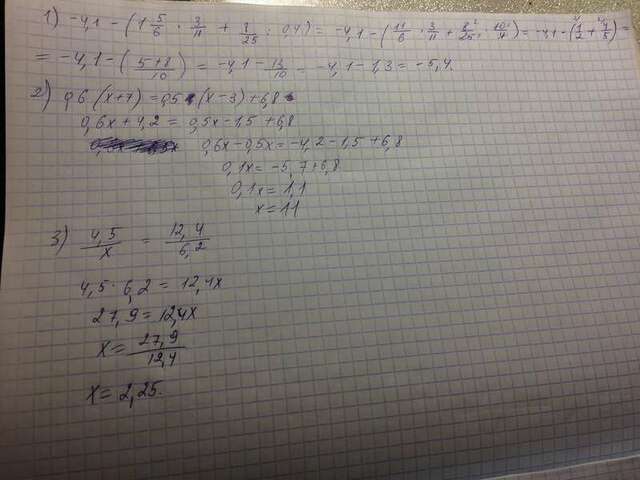 1) -4,1 - (1 5/6 · 3/11 + 8/25 : 0,4) = -4,1 - (11/6 · 3/11 + 8/25 · 10/4) = -4,1 - (1/2 + 4/5) =
= -4,1 - (5+8/10) = -4,1 - 13/10 = -4,1 - 1,3 = -5,4.
2) 0,6 (x+7) = 0,5 (x-3) + 6,8
0,6x + 4,2 = 0,5x - 1,5 + 6,8
0,6x - 0,5x = -4,2 - 1,5 + 6,8
0,1x = -5,7 + 6,8
0,1x = 1,1
x = 11
3) 4,5/x = 12,4/6,2
4,5 · 6,2 = 12,4x
27,9 = 12,4x
x = 27,9/12,4
x = 2,25.